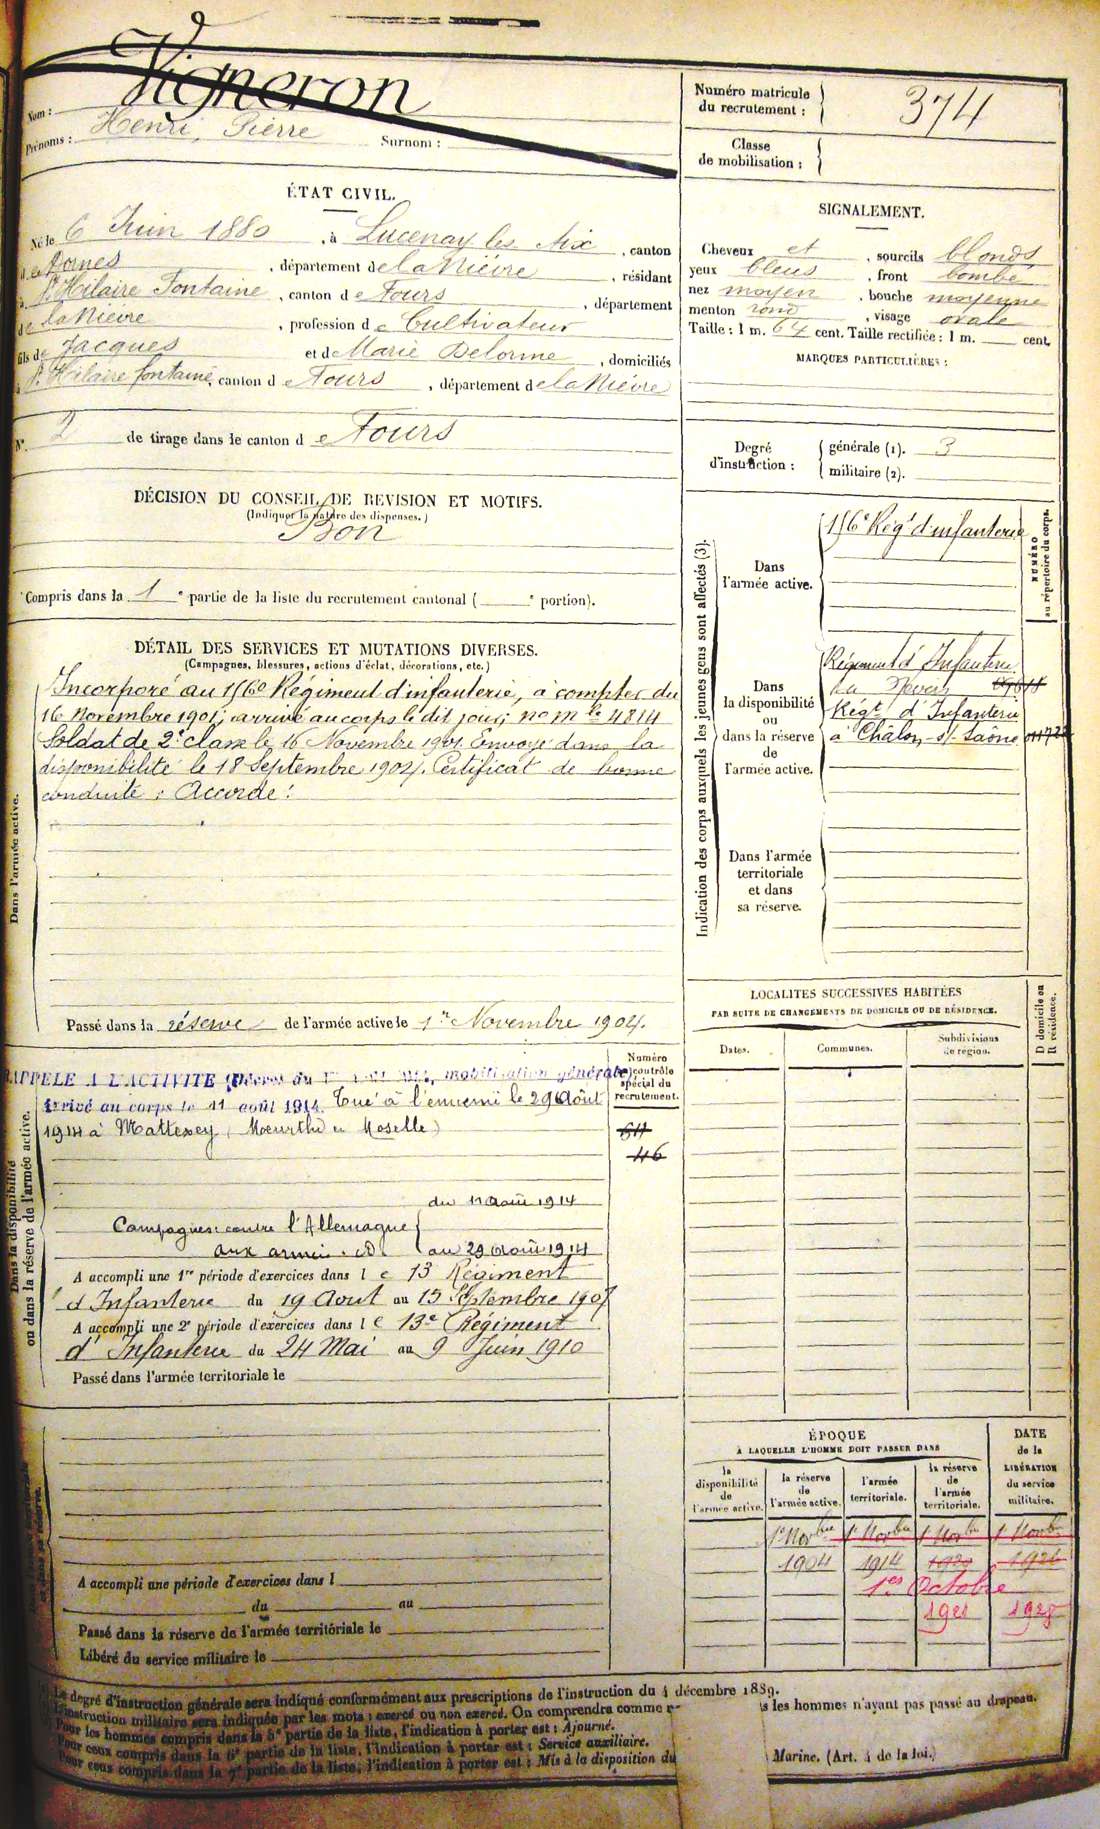 Vigneron
Nom :
Prénoms : Henri, Pierre Surnom :
Numéro matricule
du recrutement : 374
Classe
de mobilisation :
ÉTAT CIVIL.
Né le 6 Juin 1880, à Lucenay les Aix, canton
d e Dornes, département de la Nièvre, résidant
à St Hilaire Fontaine, canton de Fours, département
de la Nièvre, profession de Cultivateur
fils de Jacques et de Marie Delorme, domiciliés
à St Hilaire fontaine, canton de Fours, département de la Nièvre
N° 2 de tirage dans le canton de Fours
SIGNALEMENT.
Cheveux et, sourcils blonds
yeux bleus, front bombé
nez moyen, bouche moyenne
menton rond, visage ovale
Taille : 1 m. 64 cent. Taille rectifiée : 1 m. cent.
MARQUES PARTICULIÈRES :
Degré
d'instruction :
générale (1). 3
militaire (2).
DÉCISION DU CONSEIL DE REVISION ET MOTIFS.
(Indiquer la nature des dispenses.)
Bon
Compris dans la 1e partie de la liste du recrutement cantonal ( e portion).
DÉTAIL DES SERVICES ET MUTATIONS DIVERSES.
(Campagnes, blessures, actions d'éclat, décorations, etc.)
Dans l'armée active.
Incorporé au 156e Régiment d'infanterie, à compter du
16 Novembre 1901; arrivé au corps le dit jour; no mle 4814
Soldat de 2e classe le 16 Novembre 1901. Envoyé dans la
disponibilité le 18 Septembre 1904. Certificat de bonne
conduite : Accordé.
Passé dans la réserve de l'armée active le 1er Novembre 1904.
Indication des corps auxquels les jeunes gens sont affectés (3).
NUMÉRO
au répertoire du corps.
Dans
l'armée active.
156e Régt d'infanterie
Dans
la disponibilité
ou
dans la réserve
de
l'armée active.
Régiment d'Infanterie
de Nevers
Régt d'Infanterie
à Châlon s/ Saône
Dans l'armée
territoriale
et dans
sa réserve.
LOCALITES SUCCESSIVES HABITÉES
PAR SUITE DE CHANGEMENTS DE DOMICILE OU DE RÉSIDENCE.
Dates.
Communes.
Subdivisions
de région.
D domicile ou
R résidence.
Dans la disponibilité
ou dans la réserve de l'armée active.
Numéro
au contrôle
spécial du
recrutement.
RAPPELÉ A L'ACTIVITÉ (Décret du 1er août 1914, mobilisation générale)
Arrivé au corps le 11 août 1914. Tué à l'ennemi le 29 Août
1914 à Mattexey (Meurthe et Moselle)
46
Campagnes : contre l'Allemagne
aux armées
du 11 Août 1914
au 29 Août 1914
A accompli une 1re période d'exercices dans le 13 Régiment
d'Infanterie du 19 Aout au 15 Septembre 1907
A accompli une 2e période d'exercices dans le 13e Régiment
d'Infanterie du 24 Mai au 9 Juin 1910
Passé dans l'armée territoriale le
A accompli une période d'exercices dans l
du au
Passé dans la réserve de l'armée territoriale le
Libéré du service militaire le
ÉPOQUE
A LAQUELLE L'HOMME DOIT PASSER DANS
DATE
de la
LIBÉRATION
du service
militaire.
la
disponibilité
de
l'armée active.
la réserve
de
l'armée active.
l'armée
territoriale.
la réserve
de
l'armée
territoriale.
1er Novbre 1er Novbre 1 Novbre 1 Novb.
1904 1914 1920 1926
1er Octobre
1921 1928
Le degré d'instruction générale sera indiqué conformément aux prescriptions de l'instruction du 4 décembre 1889.
L'instruction militaire sera indiquée par les mots : exercé ou non exercé. On comprendra comme
s les hommes n'ayant pas passé au drapeau.
Pour les hommes compris dans la 5e partie de la liste, l'indication à porter est : Ajourné.
Pour ceux compris dans la 6e partie de la liste, l'indication à porter est : Service auxiliaire.
Pour ceux compris dans la 7e partie de la liste, l'indication à porter est : Mis à la disposition du
Marine. (Art. 4 de la loi.)